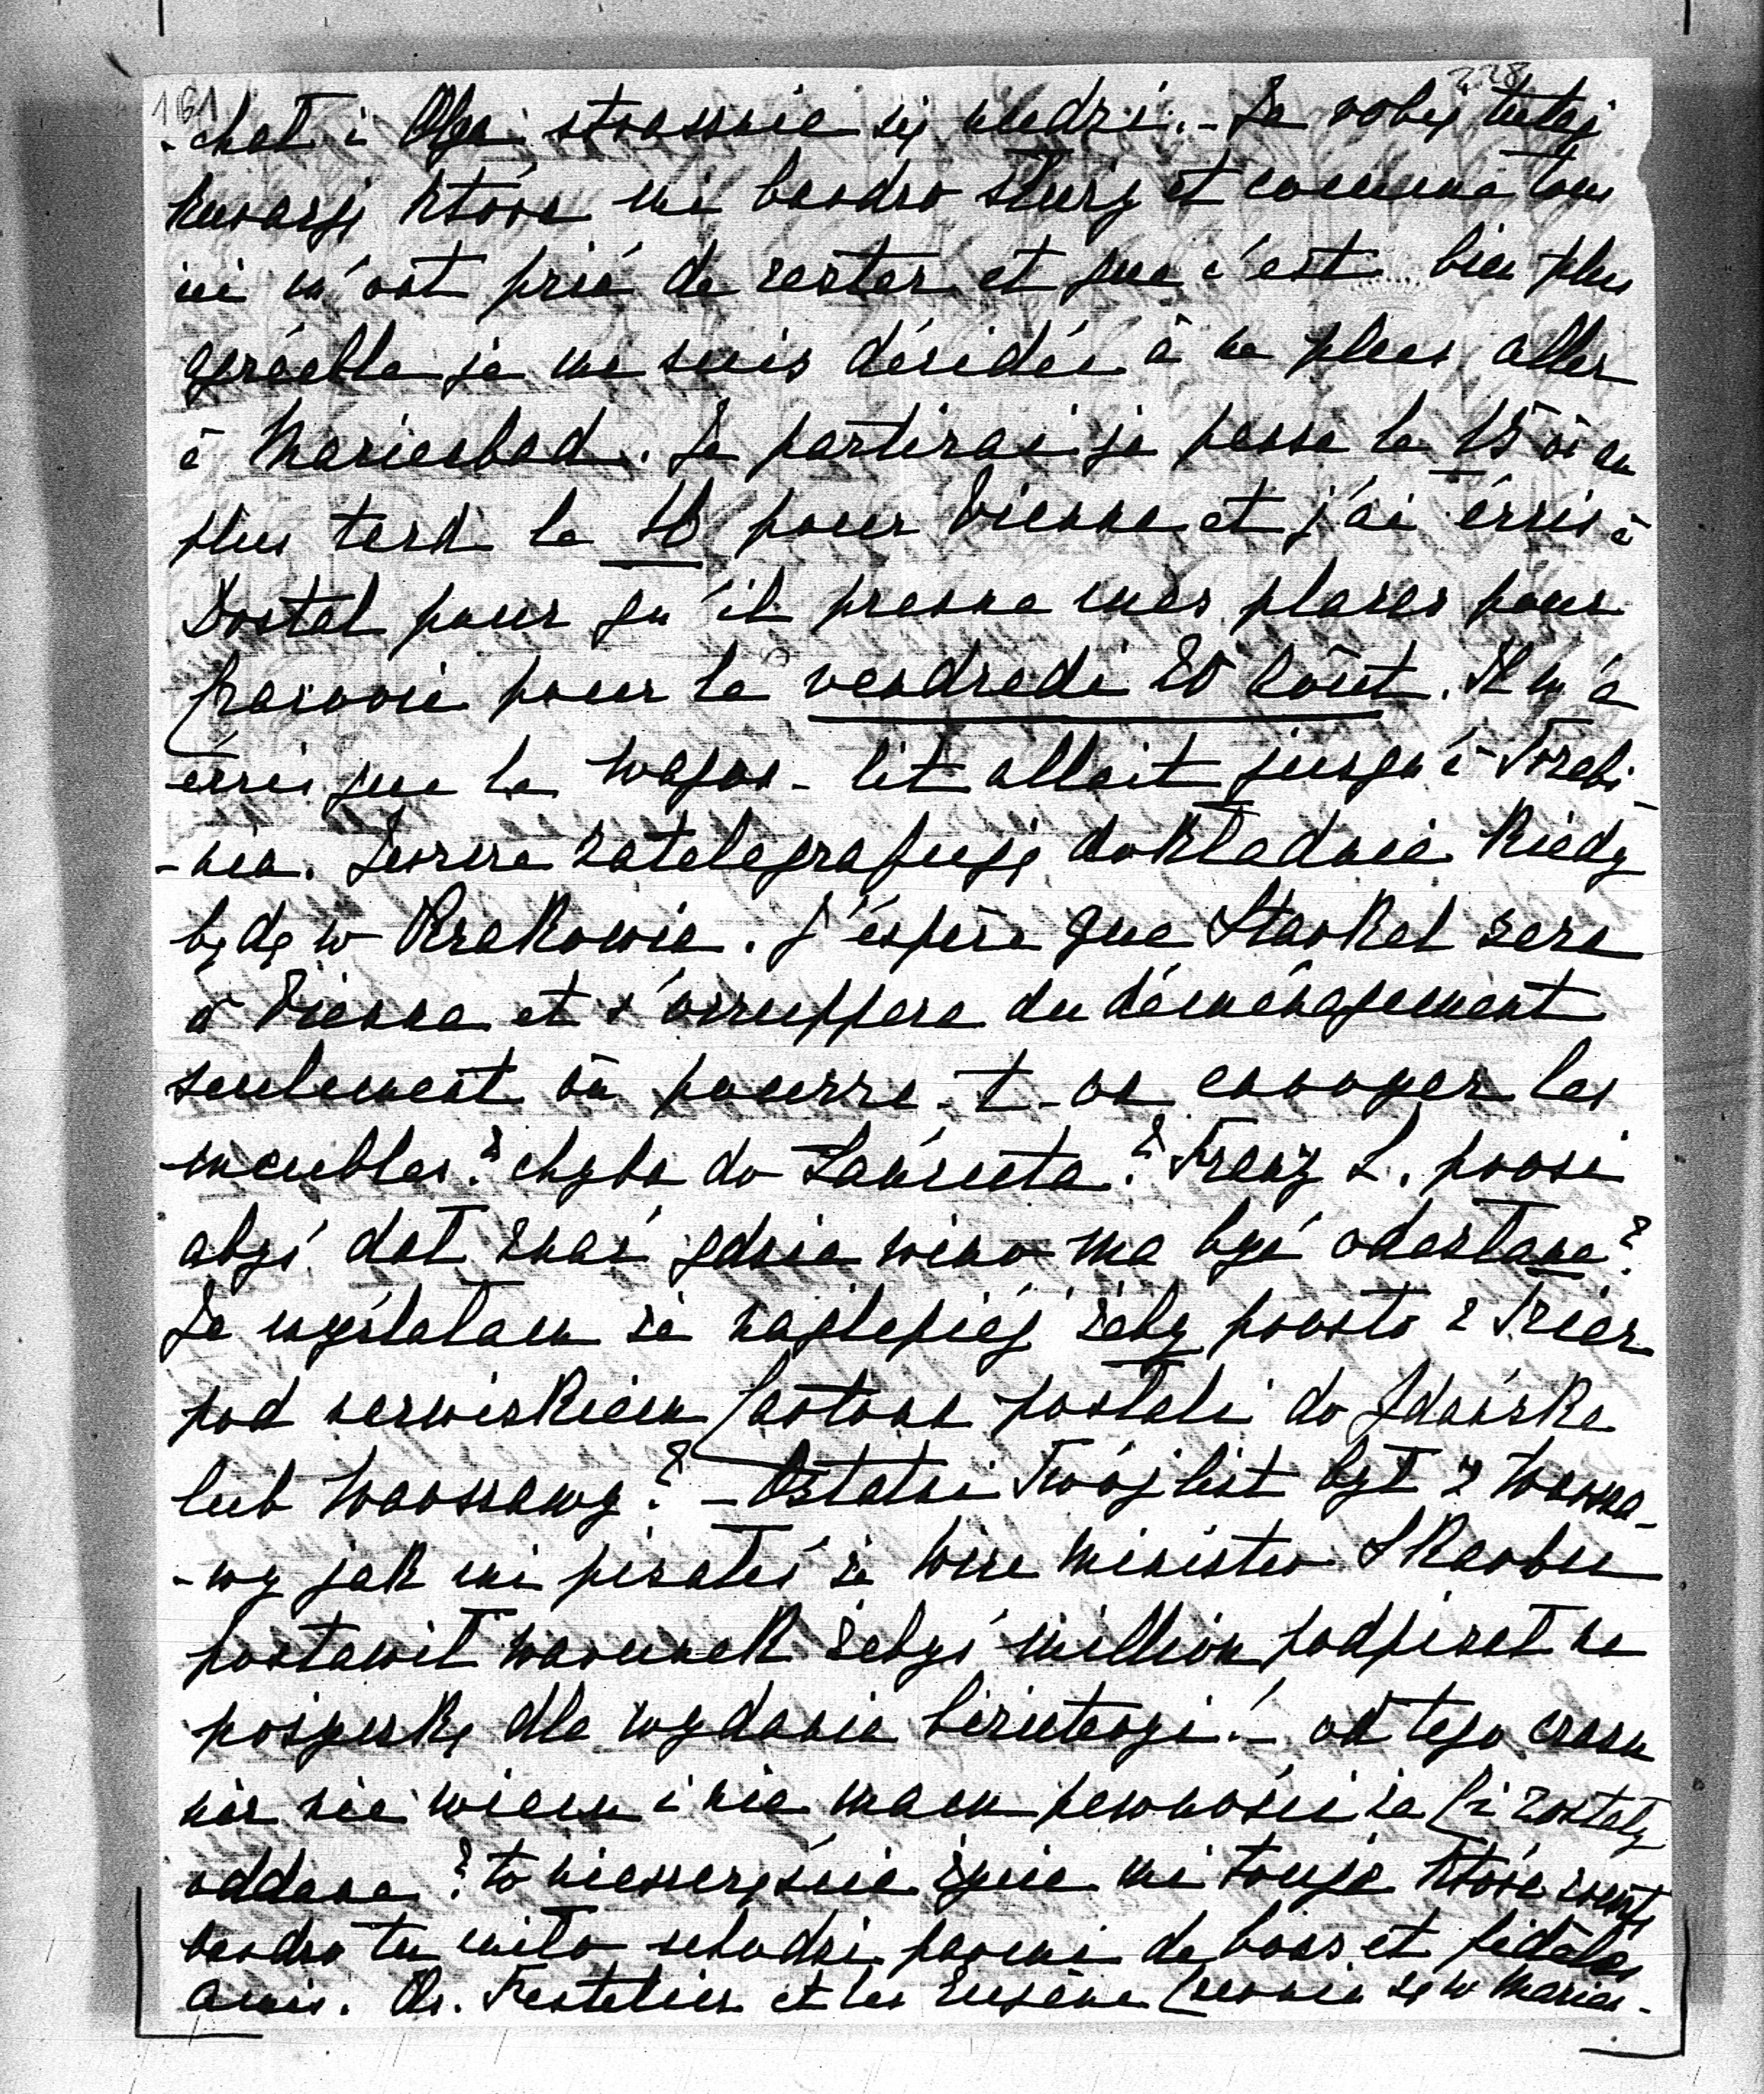 161 228
-chał i Olga strasznie się nudzi. - Ja robię tutaj
kuracyę która mi bardzo służy et comme tous
ici m'ont prié de rester et que c'est bien plus
agréable je me suis décidée à ne plus aller
à Marienbad. Je partirai je pense le 15 où au
plus tard le 18 pour Vienne et j'ai écris à
Dostal pour qu'il prenne mes places pour
Cracovie pour le vendredi 20 Août. Il m'a
écris que le wagon-lit allait jusqu'à Trebi-
-nia. Jeszcze zatelegrafuję dokładnie kiedy
będę w Krakowie. J'éspère que Starkel sera
à Vienne et s'occuppera du déménagement
seulement où pourra-t-on envoyer les
meubles? chyba do Łańcuta? Franz L. prosi
abyś dał znać gdzie wino ma być odesłane?
Ja myślałam że najlepiéj żeby prosto z Trier
pod nazwiskiem Castona posłali do Gdańska
lub Warszawy? - Ostatni Twój list był z Warsza-
-wy jak mi pisałeś że Wice Minister Skarbu
postawił warunek żebyś million podpisał na
pożyczkę dla wydania biżuteryi! - od tego czasu
nic nie wiem i nie mam pewności że Ci zostały
oddane? to nieszczęśnie życie mi truje które zresztą
bardzo tu miło schodzi parmi de bons et fidèles
amis. Os. Festetics et les Eugène Czernin są w Marien-